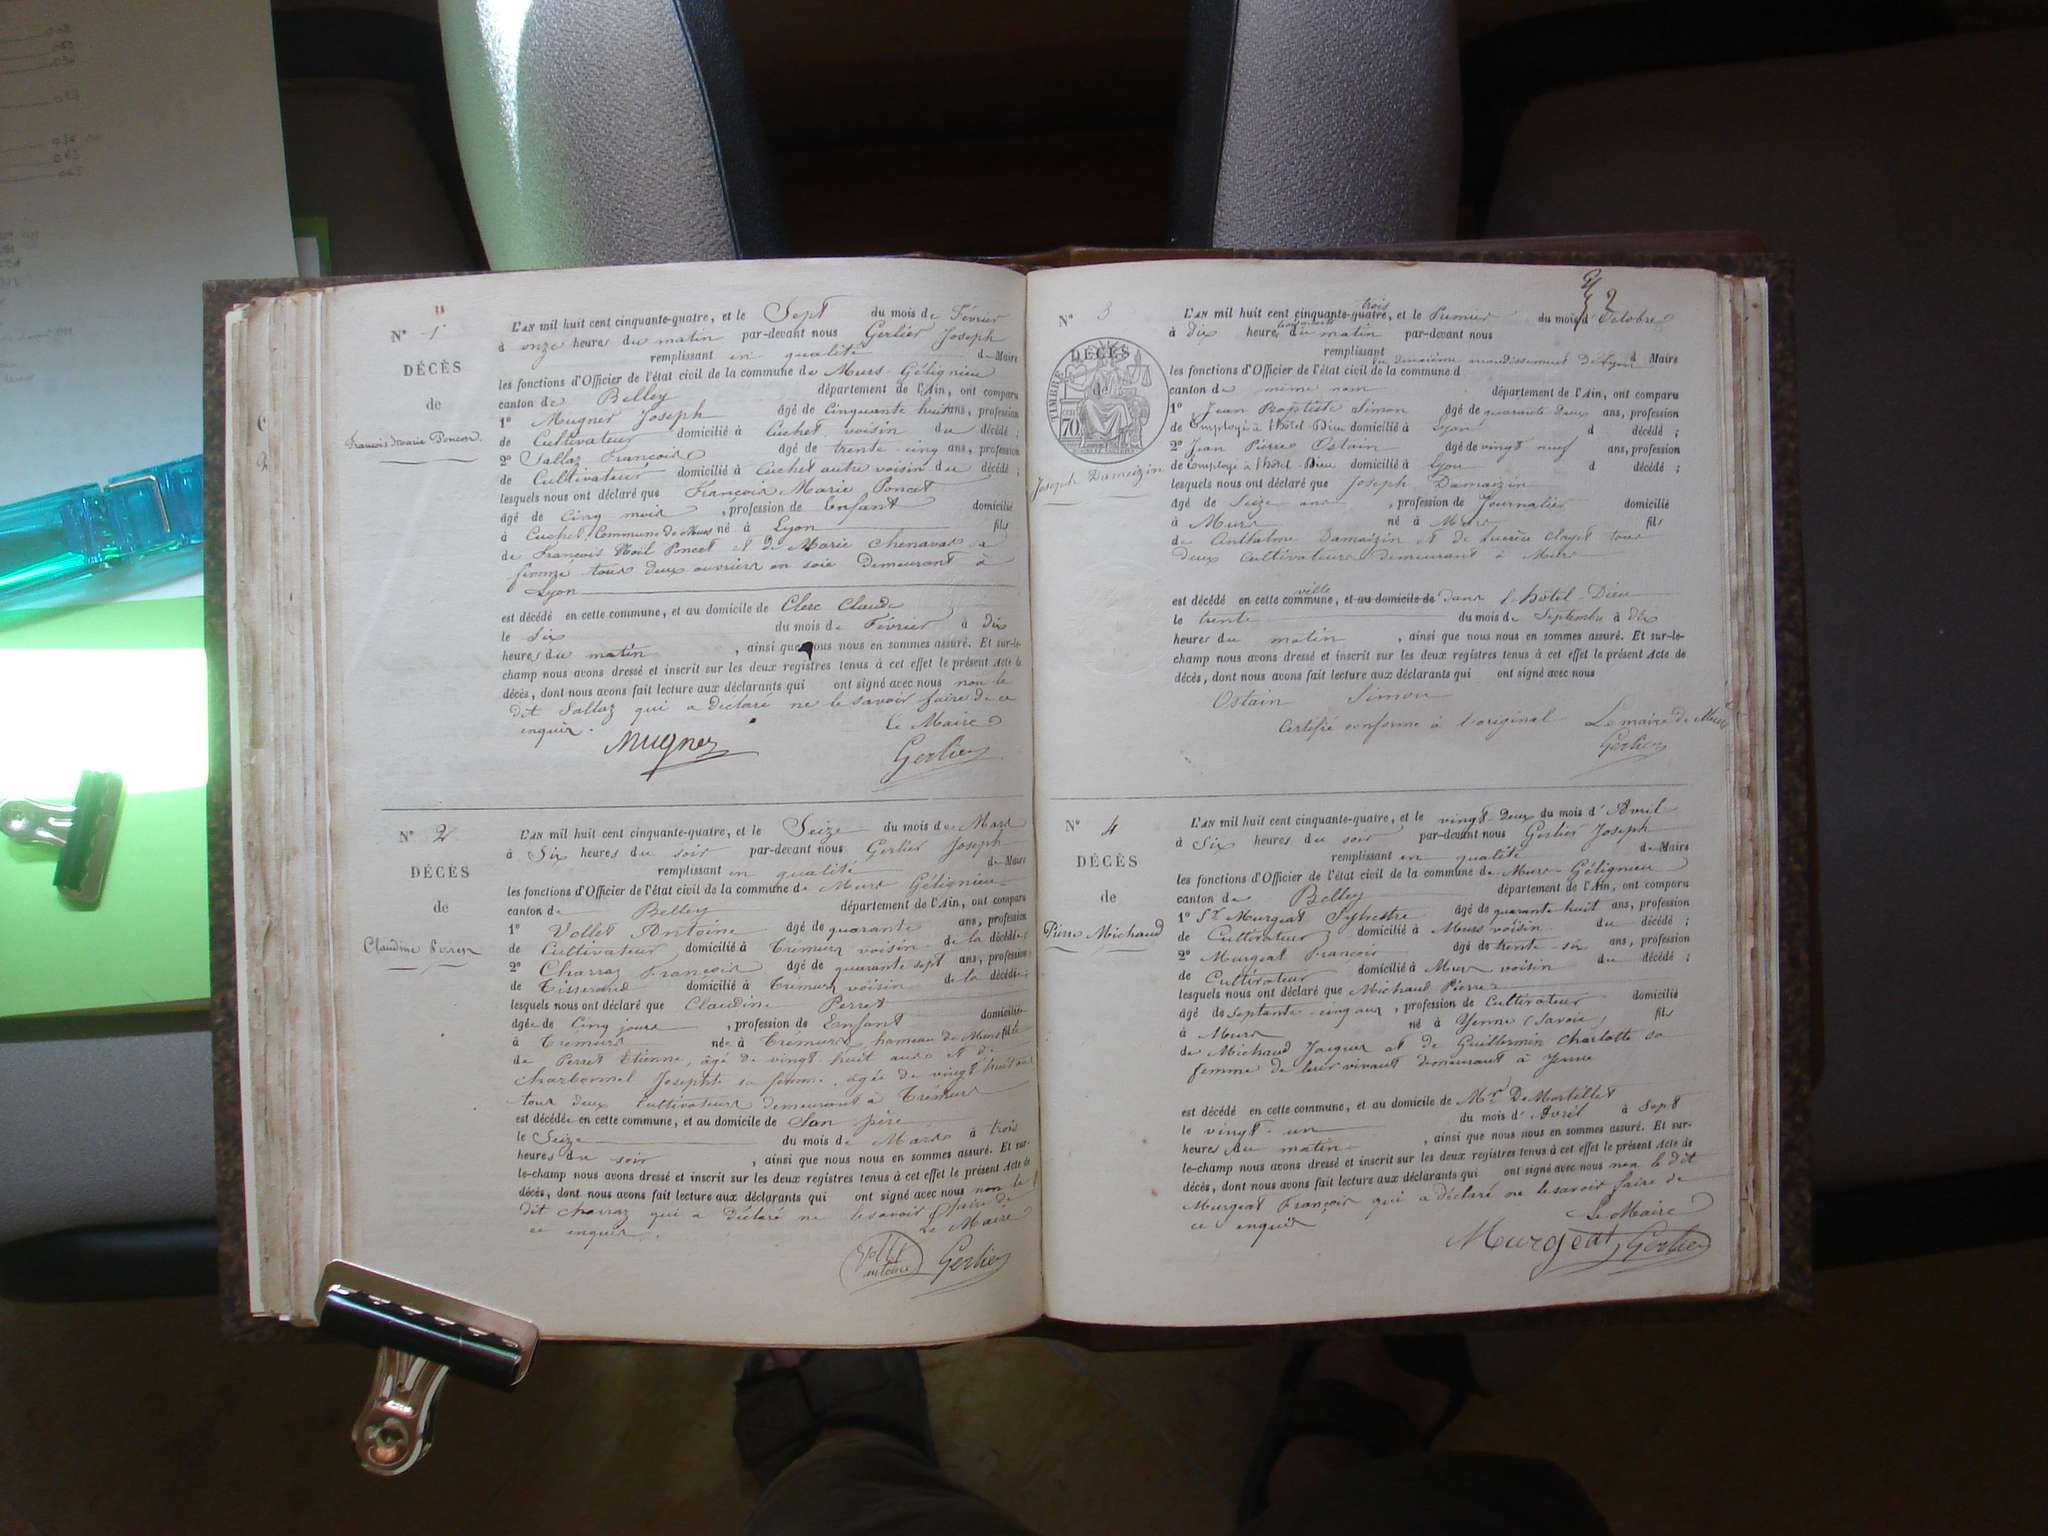 N° 1
DÉCÈS
de
François Marie Poncet
L'AN mil huit cent cinquante-quatre, et le Sept du mois de Février
à onze heures du matin par-devant nous Gerlier Joseph
remplissant en qualité de Maire
les fonctions d'Officier de l'état civil de la commune de Murs-Gélignieu
canton de Belley département de l'Ain, ont comparu
1° Mugner Joseph âgé de Cinquante huit ans, profession
de Cultivateur domicilié à Cuchet voisin du décédé ;
2° Sallaz François âgé de trente-cinq ans, profession
de Cultivateur domicilié à Cuchet autre voisin du décédé ;
lesquels nous ont déclaré que François Marie Poncet
âgé de Cinq mois , profession de Enfant domicilié
à Cuchet, Commune de Murs né à Lyon fils
de François Noël Poncet et de Marie Chenavas sa
femme tous deux ouvriers en soie demeurant à
Lyon
est décédé en cette commune, et au domicile de Clerc Claude
le Six du mois de Février à dix
heures du matin , ainsi que nous nous en sommes assuré. Et sur-le-
champ nous avons dressé et inscrit sur les deux registres tenus à cet effet le présent Acte de
décès, dont nous avons fait lecture aux déclarants qui ont signé avec nous non le
dit Sallaz qui a déclaré ne le savoir faire de ce
enquis.
Le Maire
Mugner Gerlier
N° 2
DÉCÈS
de
Claudine Perret
L'AN mil huit cent cinquante-quatre, et le Seize du mois de Mars
à Six heures du soir par-devant nous Gerlier Joseph
remplissant en qualité de Maire
les fonctions d'Officier de l'état civil de la commune de Murs Gélignieu
canton de Belley département de l'Ain, ont comparu
1° Vollet Antoine âgé de quarante ans, profession
de Cultivateur domicilié à Trémurs voisin de la décédée ;
2° Charraz François âgé de quarante sept ans, profession
de Tisserand domicilié à Trémurs voisin de la décédée ;
lesquels nous ont déclaré que Claudine Perret
âgée de Cinq jours , profession de Enfant domiciliée
à Trémurs née à Trémurs, hameau de Murs fille
de Perret Etienne, âgé de vingt huit ans et de
Charbonnel Josephte sa femme, âgée de vingt huit ans
tous deux Cultivateurs demeurant à Trémurs
est décédée en cette commune, et au domicile de Son père
le Seize du mois de Mars à trois
heures du soir , ainsi que nous nous en sommes assuré. Et sur-
le-champ nous avons dressé et inscrit sur les deux registres tenus à cet effet le présent Acte de
décès, dont nous avons fait lecture aux déclarants qui ont signé avec nous non le
dit Charraz qui a déclaré ne le savoir faire de
ce enquis.
Le Maire
Gerlier
N° 3
DÉCÈS
de
TIMBRE
70
Joseph Damaizin
L'AN mil huit cent cinquante-quatre trois, et le Premier du mois d'Octobre
à dix heures du matin par-devant nous
remplissant d Maire
les fonctions d'Officier de l'état civil de la commune d du Deuxième arrondissement de Lyon
canton de même nom département de l'Ain, ont comparu
1° Jean Baptiste Simon âgé de quarante Deux ans, profession
de Employé à l'hôtel-Dieu domicilié à Lyon d décédé ;
2° Jean Pierre Ostain âgé de vingt neuf ans, profession
de Employé à l'hôtel-Dieu domicilié à Lyon d décédé ;
lesquels nous ont déclaré que Joseph Damaizin
âgé de Seize ans , profession de Journalier domicilié
à Murs né à Murs fils
de Anthelme Damaizin et de Lucrèce Clayet tous
deux Cultivateurs demeurant à Murs
est décédé en cette commune ville, et au domicile de dans l'hôtel-Dieu
le trente du mois de Septembre à dix
heures du matin , ainsi que nous nous en sommes assuré. Et sur-le-
champ nous avons dressé et inscrit sur les deux registres tenus à cet effet le présent Acte de
décès, dont nous avons fait lecture aux déclarants qui ont signé avec nous
Ostain Simon
Certifié conforme à l'original Le maire de Murs
Gerlier
N° 4
DÉCÈS
de
Pierre Michaud
L'AN mil huit cent cinquante-quatre, et le vingt-Deux du mois d'Avril
à Six heures du soir par-devant nous Gerlier Joseph
remplissant en qualité de Maire
les fonctions d'Officier de l'état civil de la commune de Murs-Gélignieu
canton de Belley département de l'Ain, ont comparu
1° Sr Murgeat Sylvestre âgé de quarante huit ans, profession
de Cultivateur domicilié à Murs voisin du décédé ;
2° Murgeat François âgé de trente-six ans, profession
de Cultivateur domicilié à Murs voisin du décédé ;
lesquels nous ont déclaré que Michaud Pierre
âgé de septante-cinq ans, profession de Cultivateur domicilié
à Murs né à Yenne (Savoie) fils
de Michaud Jacques et de Guillermin Charlotte sa
femme de leur vivant demeurant à Yenne
est décédé en cette commune, et au domicile de Mr De Mortillet
le vingt-un du mois d'Avril à Sept
heures du matin , ainsi que nous nous en sommes assuré. Et sur-
le-champ nous avons dressé et inscrit sur les deux registres tenus à cet effet le présent Acte de
décès, dont nous avons fait lecture aux déclarants qui ont signé avec nous non le dit
Murgeat François qui a déclaré ne le savoir faire de
ce enquis
Le Maire
Murgeat Gerlier